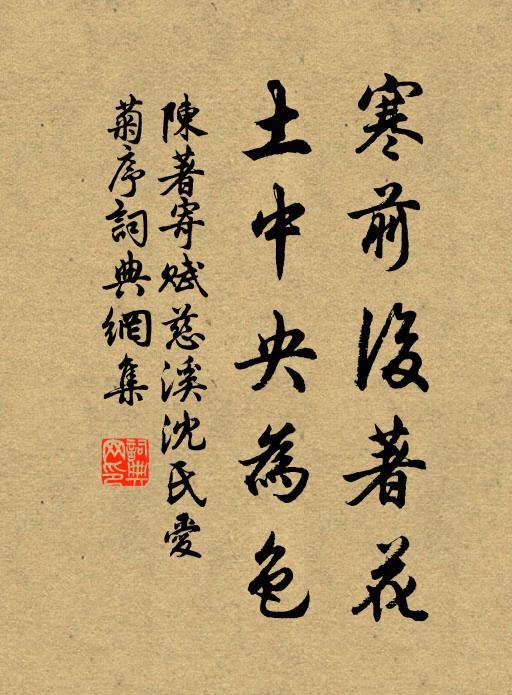 寒前後著花
土中央為色
陳著寄賦慈溪沈氏愛
菊序詞典網集
詞典網印